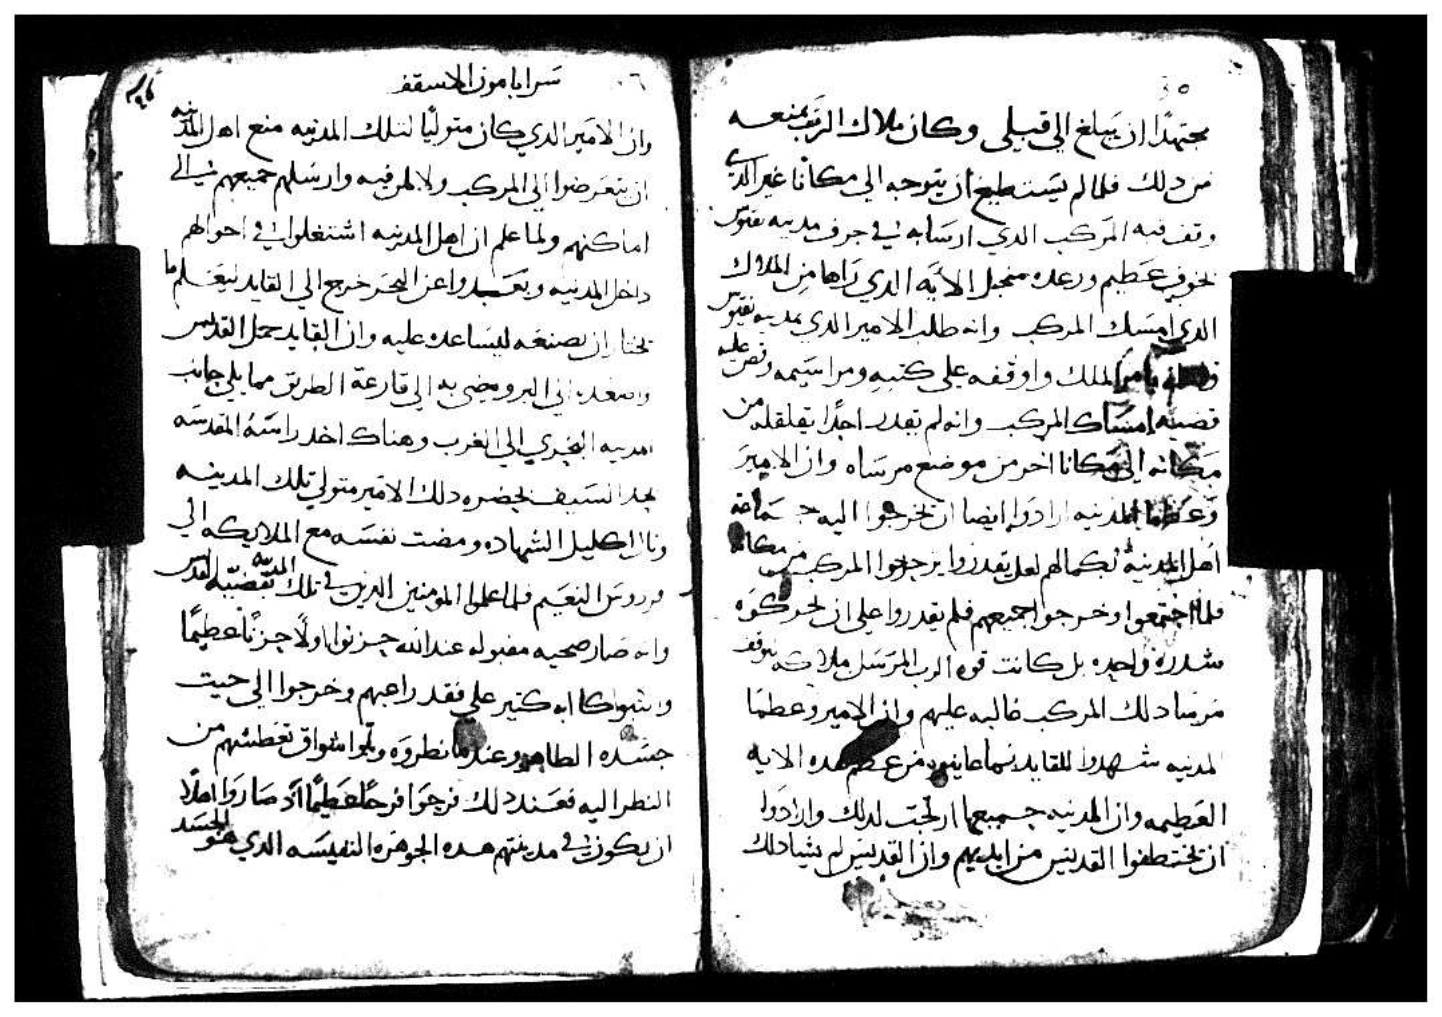 مجتهدًا ان يبلغ الي قبلي وكان ملاك الرب يمنعه
من دلك فلما لم يستطيع ان يتوجه الي مكانا غير الدي
وقف فيه المركب الدي ارساه في جرف مدينه نقيوس
بخوف عظيم ورعده منجل الايه الدي راها من الملاك
الدي امسك المركب وانه طلب الامير الدي بمدينه نقيوس
بامر الملك واوقفه علي كتبه ومراسيمه وقص عليه
قضية امساك المركب وانه لم يقدر احدًا يقلقله من
مكانه الي مكانا اخر من موضع مرساه وان الامير
وعظما المدينه ارادوا ايضا ان يخرجوا اليه جماعة
اهل المدينة بكمالهم لعل يقدروا يزحزحوا المركب من مكانه
فلما اجتمعوا وخرجوا جميعهم فلم يقدروا علي ان يحركوه
واحده بل كانت قوه الرب المرسل ملاكه يوقف
مرسا دلك المركب غالبه عليهم وان الامير وعظما
المدينه شهدوا للقايد بما عاينوه من عظم هده الايه
العظيمه وان المدينه جميعها ارتجت لدلك وارادوا
ان يختطفوا القديس من ايديهم وان القديس لم يشا دلك
سرابامون الاسقف
وان الامير الدي كان متوليًا لتلك المدينه منع اهل المدينه
ان يتعرضوا الي المركب ولا لمن فيه وارسلهم جميعهم الي
اماكنهم ولما علم ان اهل المدينه اشتغلوا في احوالهم
داخل المدينه وبعدوا عن البحر خرج الي القايد ليعلم ما
يختار ان يصنعه ليساعده عليه وان القايد حمل القديس
واصعده الي البر ومضي به الي قارعة الطريق مما يلي جانب
المدينه البحري الي الغرب وهناك اخد راسه المقدسه
بحد السيف بحضره دلك الامير متولي تلك المدينه
ونال اكليل الشهاده ومضت نفسه مع الملايكه الي
فردوس النعيم فلما علموا المومنين الدين في تلك المدينه بقضيه القديس
وانه صار ضحيه مقبوله عند الله حزنوا اولًا حزنًا عظيمًا
وبكوا بكا كتير علي فقد راعيهم وخرجوا الي حيت
جسده الطاهر وعندما نظروه وتموا اشواق تعطشهم من
النظر اليه فعند دلك فرحوا فرحًا عظيمًا اد صاروا اهلًا
ان يكون في مدينتهم هده الجوهره النفيسه الدي هو الجسد